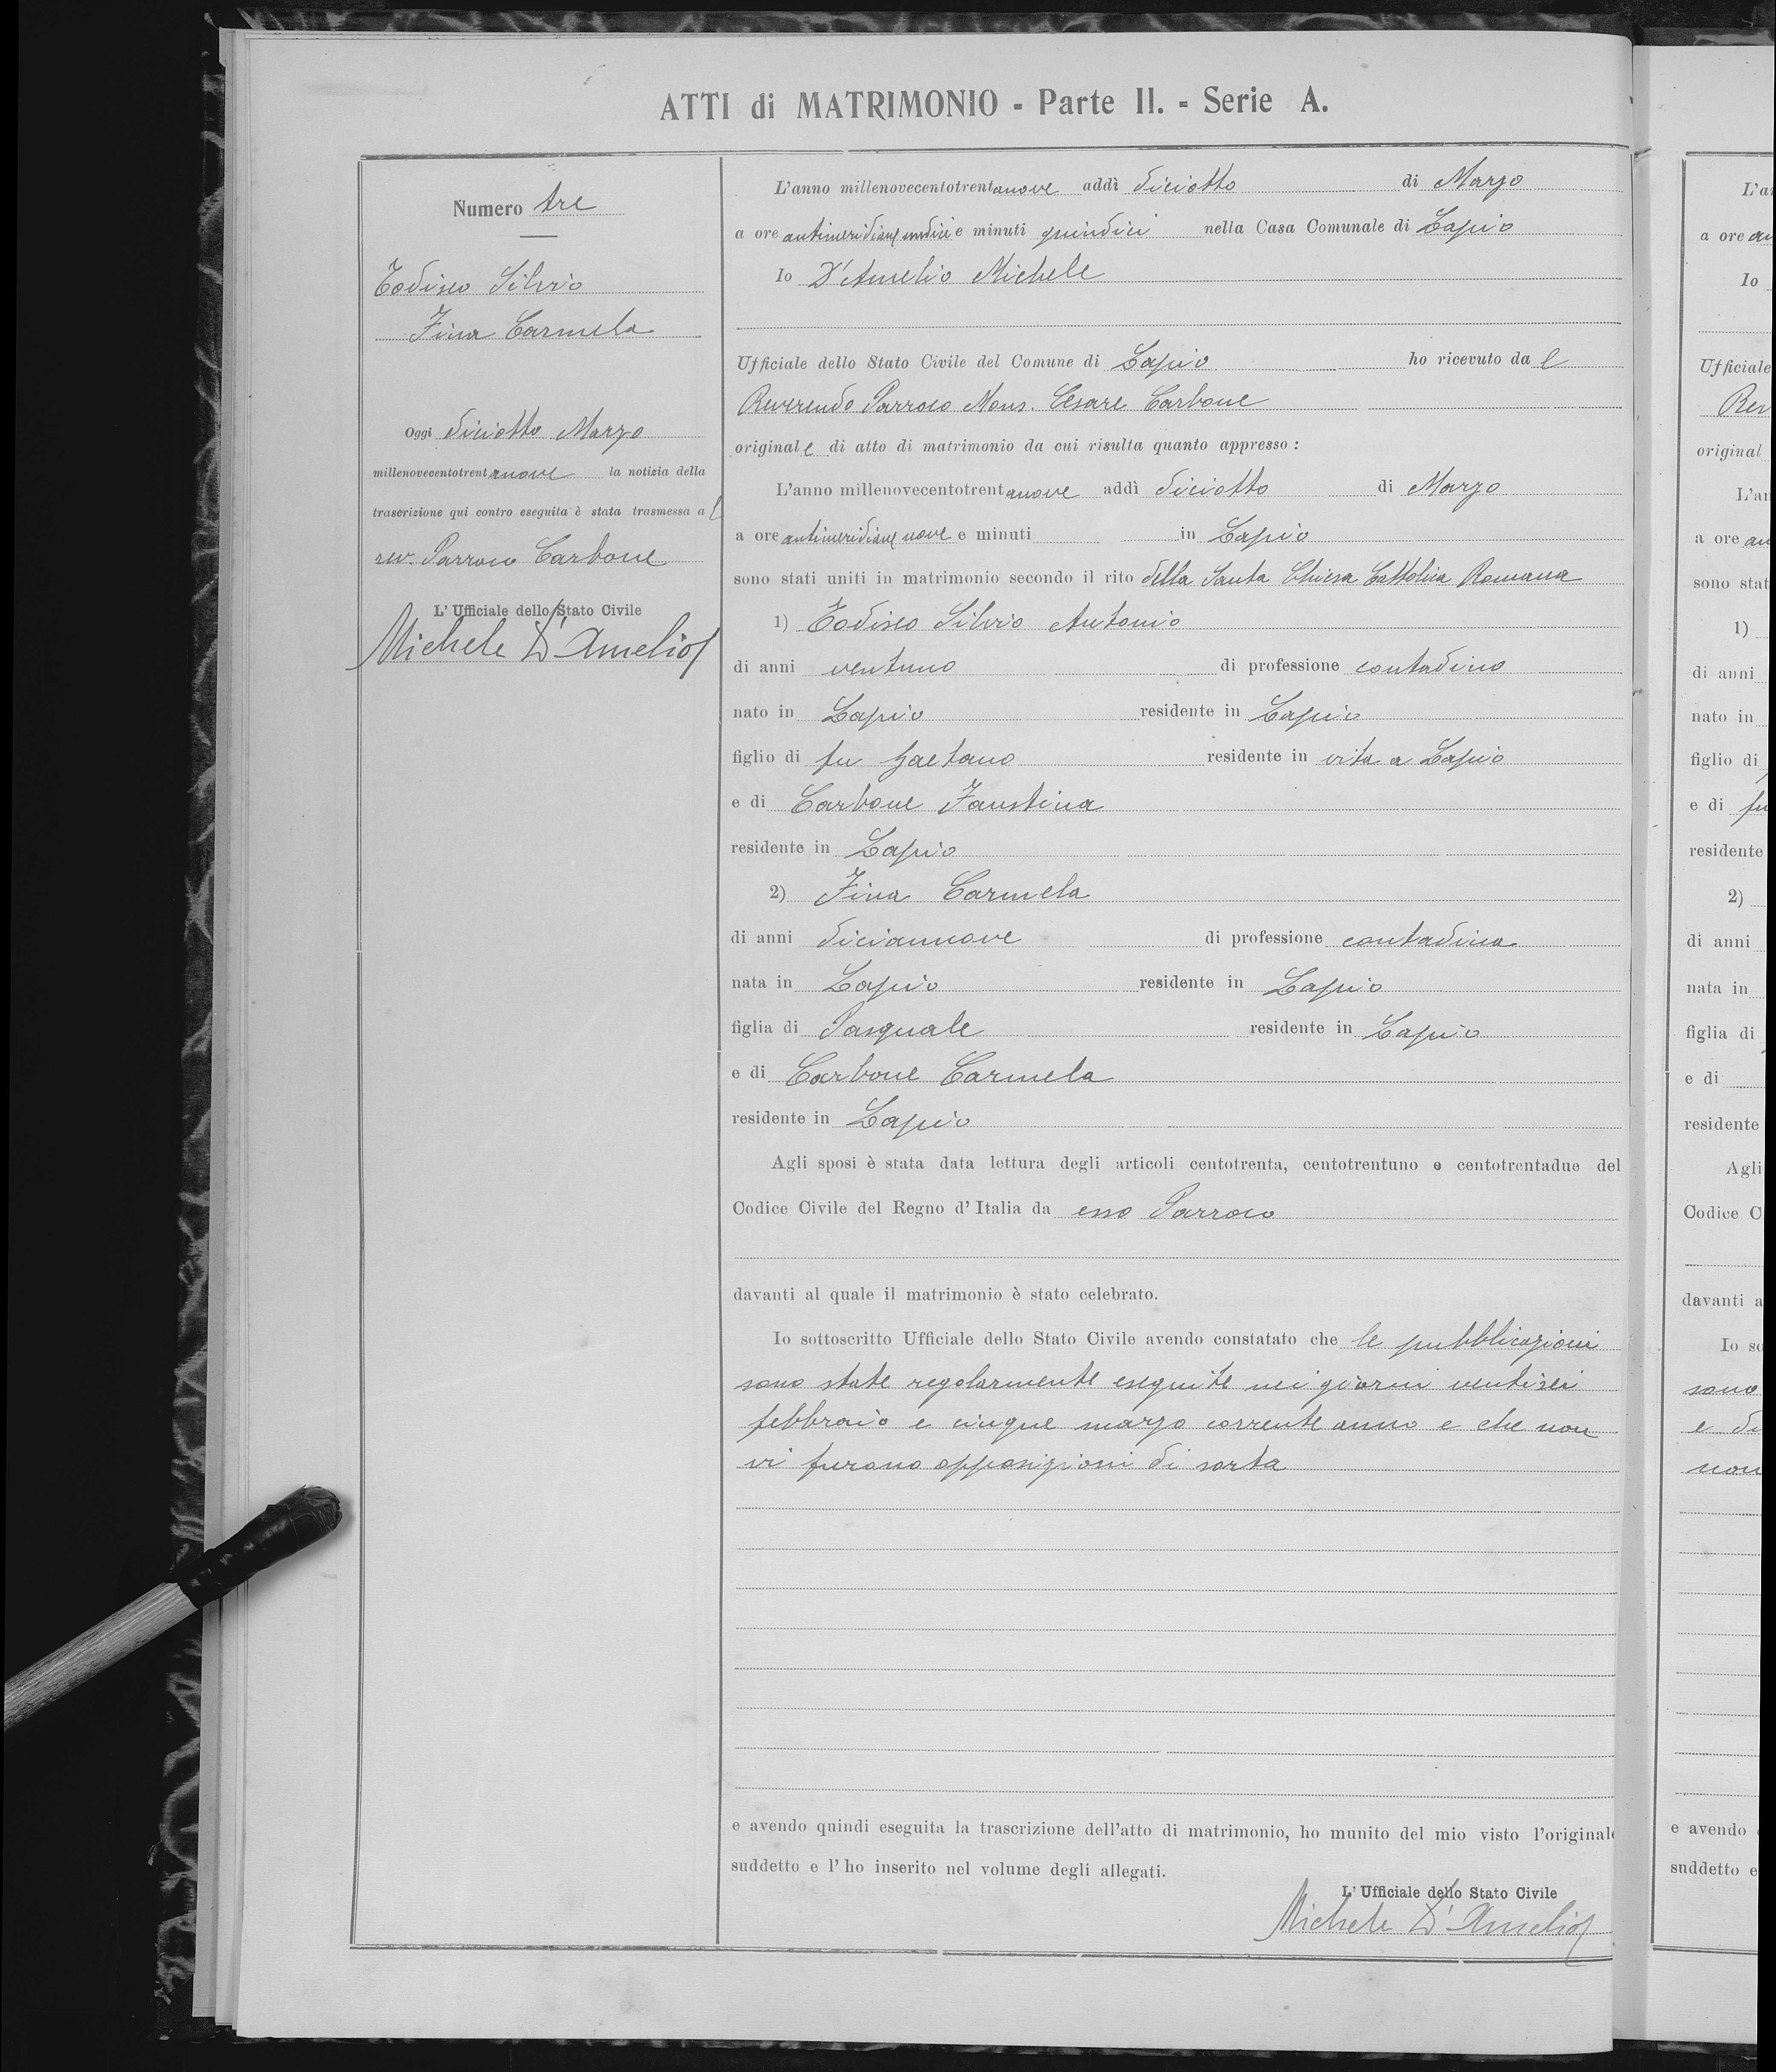 ATTI di MATRIMONIO - Parte II. - Serie A.
Numero tre
Todisco Silvio
Fina Carmela
Oggi diciotto Marzo
millenovecentotrentanove la notizia della
trascrizione qui contro eseguita è stata trasmessa al
rev. Parroco Carbone
L'Ufficiale dello Stato Civile
Michele D'Amelio
L'anno millenovecentotrentanove addì diciotto di Marzo
a ore antimeridiane undici e minuti quindici nella Casa Comunale di Lapio
Io D'Amelio Michele
Ufficiale dello Stato Civile del Comune di Lapio ho ricevuto dal
Reverendo Parroco Mons. Cesare Carbone
originale di atto di matrimonio da cui risulta quanto appresso:
L'anno millenovecentotrentanove addì diciotto di Marzo
a ore antimeridiane nove e minuti in Lapio
sono stati uniti in matrimonio secondo il rito della Santa Chiesa Cattolica Romana
1) Todisco Silvio Antonio
di anni ventuno di professione contadino
nato in Lapio residente in Lapio
figlio di fu Gaetano residente in vita a Lapio
e di Carbone Faustina
residente in Lapio
2) Fina Carmela
di anni diciannove di professione contadina
nata in Lapio residente in Lapio
figlia di Pasquale residente in Lapio
e di Carbone Carmela
residente in Lapio
Agli sposi è stata data lettura degli articoli centotrenta, centotrentuno e centotrentadue del
Codice Civile del Regno d'Italia da esso Parroco
davanti al quale il matrimonio è stato celebrato.
Io sottoscritto Ufficiale dello Stato Civile avendo constatato che le pubblicazioni
sono state regolarmente eseguite nei giorni ventisei
febbraio e cinque marzo corrente anno e che non
vi furono opposizioni di sorta
e avendo quindi eseguita la trascrizione dell'atto di matrimonio, ho munito del mio visto l'originale
suddetto e l'ho inserito nel volume degli allegati.
L'Ufficiale dello Stato Civile
Michele D'Amelio
L'a
a ore an
Io
Ufficiale
Rev
original
L'an
a ore an
sono stat
1)
di anni
nato in
figlio di
e di fu
residente
2)
di anni
nata in
figlia di
e di
residente
Agli
Codice C
davanti a
Io so
sono
e di
non
e avendo
suddetto e